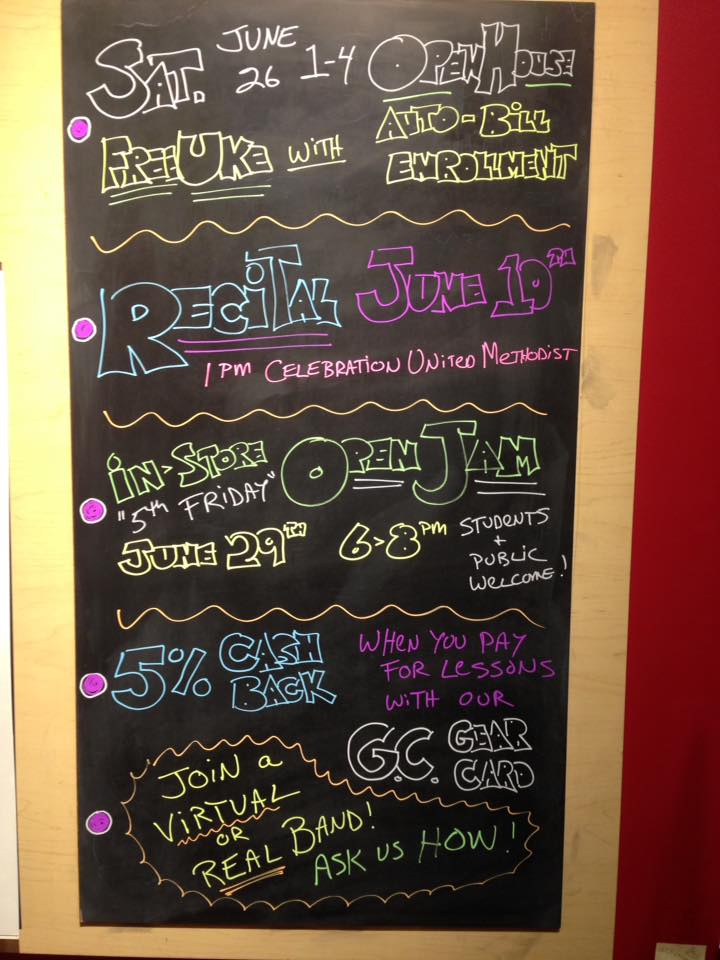 SAT. JUNE 26 1-4 OPEN HOUSE
FREE UKE WITH AUTO-BILL ENROLLMENT
RECITAL JUNE 19TH
1 PM CELEBRATION UNITED METHODIST
IN-STORE OPEN JAM
"5th FRIDAY"
JUNE 29TH 6>8PM STUDENTS + PUBLIC WELCOME!
5% CASH BACK WHEN YOU PAY FOR LESSONS WITH OUR
G.C. GEAR CARD
JOIN a
VIRTUAL
OR
REAL BAND!
ASK US HOW!